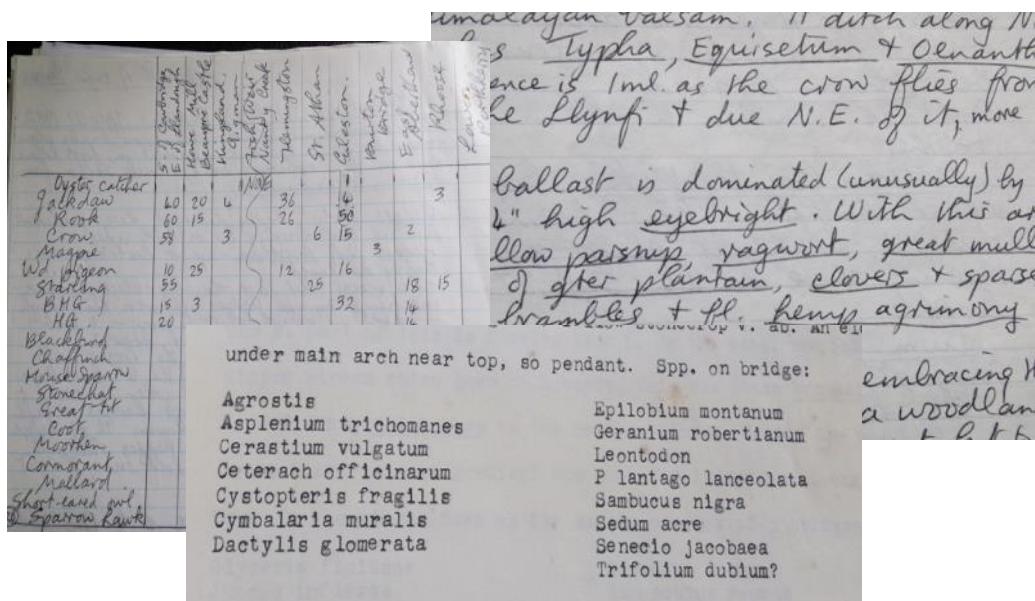 S. of Cowbridge
E. of Llandough
Howe Mill
Beaupre Castle
Flemingston
St. Athan
Gileston
Bridge
East Aberthaw
Rhoose
Porthkerry
Oyster catcher
Jackdaw 40 20 4 36 3
Rook 60 15 26 50
Crow 58 3 6 15 2
Magpie 3
Wd. pigeon 10 25 12 16
Starling 55 25 18 15
BHG 15 3 32 14
HG 20
Blackbird
Chaffinch
House Sparrow
Stonechat
Great-tit
Coot
Moorhen
Cormorant
Mallard
Short-eared owl
Sparrow hawk
imalayan balsam. A ditch along N
Typha, Equisetum & Oenanth
ence is 1ml. as the crow flies from
he Llynfi & due N.E. of it, more
ballast is dominated (unusually) by
4" high eyebright. With this a
llow parsnip, ragwort, great mull
of gter plantain, clovers & spars
brambles & fl. hemp agrimony
embracing
a woodlan
under main arch near top, so pendant. Spp. on bridge:
Agrostis
Asplenium trichomanes
Cerastium vulgatum
Ceterach officinarum
Cystopteris fragilis
Cymbalaria muralis
Dactylis glomerata
Epilobium montanum
Geranium robertianum
Leontodon
P lantago lanceolata
Sambucus nigra
Sedum acre
Senecio jacobaea
Trifolium dubium?